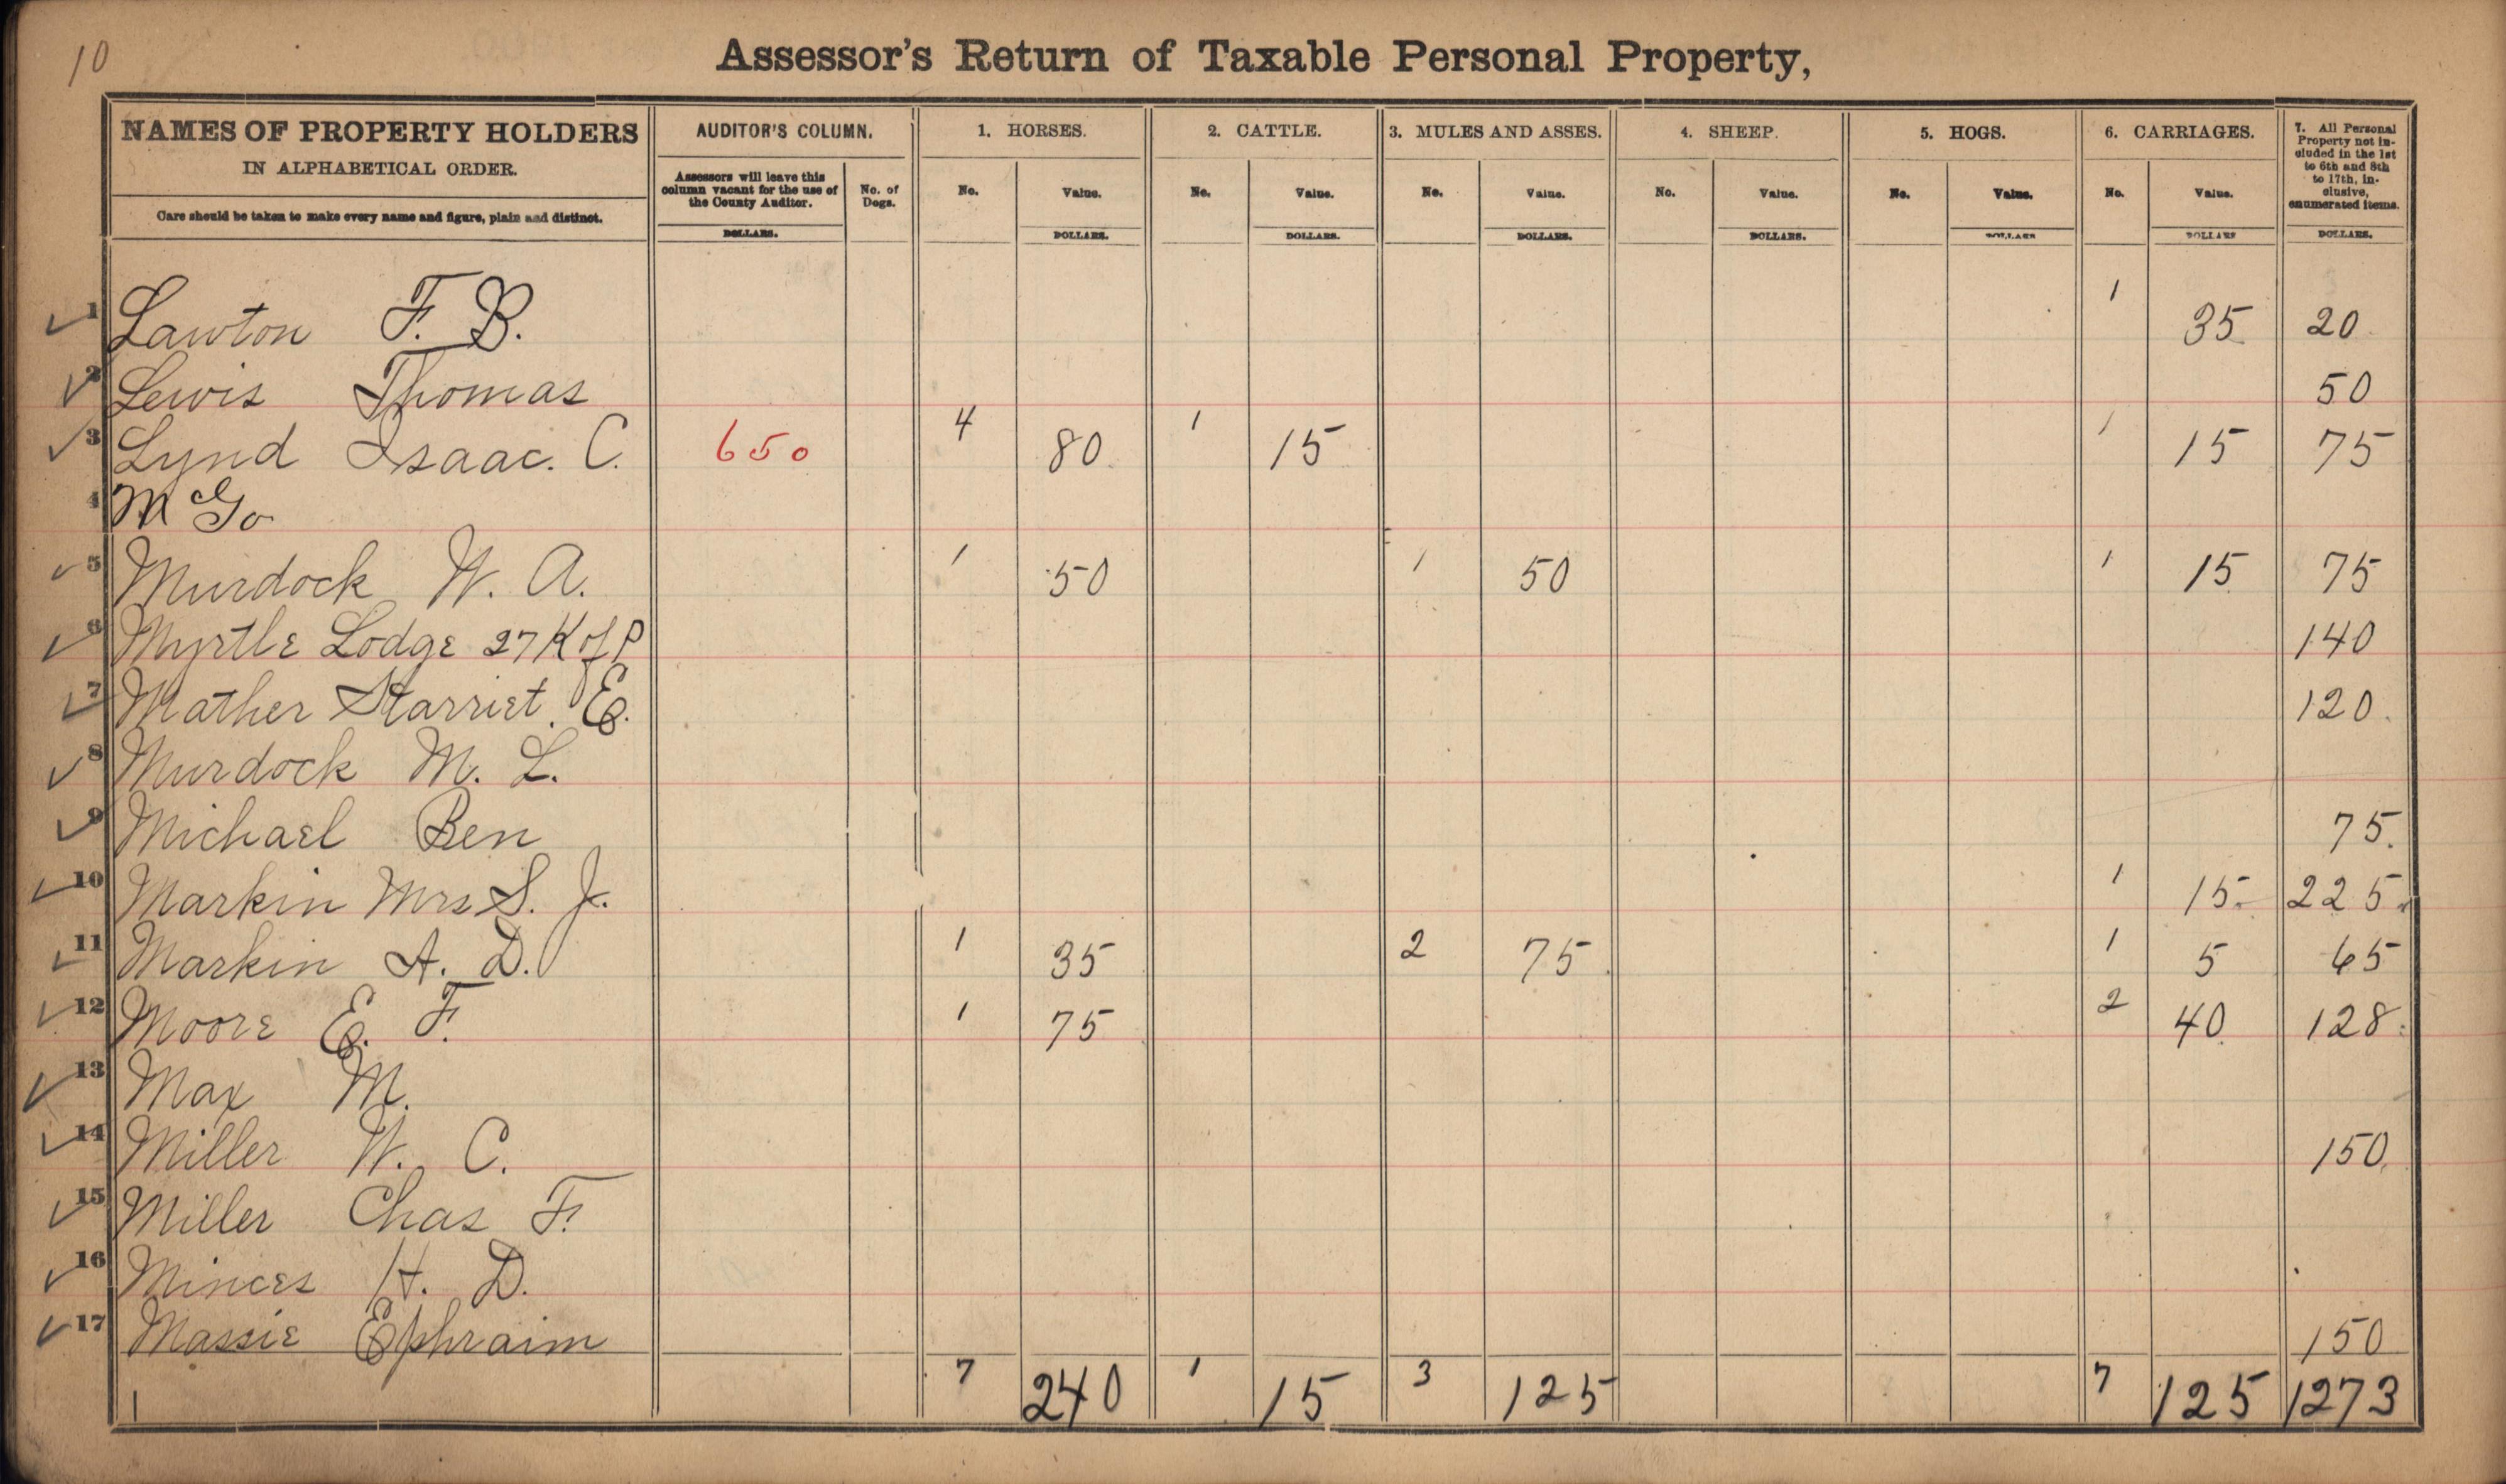 10
Assessor's Return of Taxable Personal Property,
NAMES OF PROPERTY HOLDERS
IN ALPHABETICAL ORDER.
Care should be taken to make every name and figure, plain and distinct.
AUDITOR'S COLUMN.
Assessors will leave this
column vacant for the use of
the County Auditor.
DOLLARS.
No. of
Dogs.
1. HORSES.
No. Value.
DOLLARS.
2. CATTLE.
No. Value.
DOLLARS.
3. MULES AND ASSES.
No. Value.
DOLLARS.
4. SHEEP.
No. Value.
DOLLARS.
5. HOGS.
No. Value.
DOLLARS
6. CARRIAGES.
No. Value.
DOLLARS
7. All Personal
Property not in-
cluded in the 1st
to 6th and 8th
to 17th, in-
clusive,
enumerated items.
DOLLARS.
1 Lawton F. B. 1 35 20
2 Lewis Thomas 50
3 Lynd Isaac. C. 650 4 80 1 15 1 15 75
4 McGo
5 Murdock W. A. 1 50 1 50 1 15 75
6 Myrtle Lodge 27 K of P 140
7 Mather Harriet. E. 120
8 Murdock M. L.
9 Michael Ben 75.
10 Markin Mrs S. J. 1 15 225
11 Markin A. D. 1 35 2 75 1 5 65
12 Moore E. F. 1 75 2 40 128
13 Max M.
14 Miller W. C. 150
15 Miller Chas F.
16 Minces H. D.
17 Massie Ephraim 150
7 240 1 15 3 125 7 125 1273